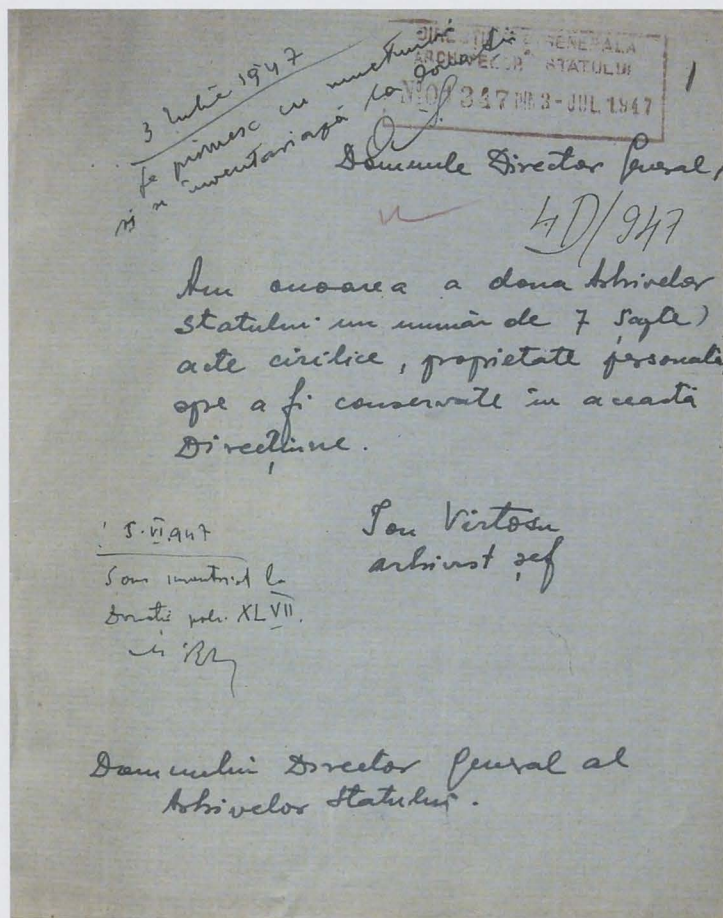 3 Iulie 1947
Se primesc cu mulțumiri
și se inventariază la donații
DIRECȚIUNEA GENERALA
ARHIVELOR STATULUI
No 01347 3-JUL 1947
1
Domnule Director General,
4D/947
Am onoarea a dona Arhivelor
Statului un număr de 7 șapte)
acte cirilice, propietate personală
spre a fi conservate în această
Direcțiune.
Ion Vîrtosu
arhivist șef
5.VI.947
S'au inventariat la
Donații XLVII.
Domnului Director General al
Arhivelor Statului.